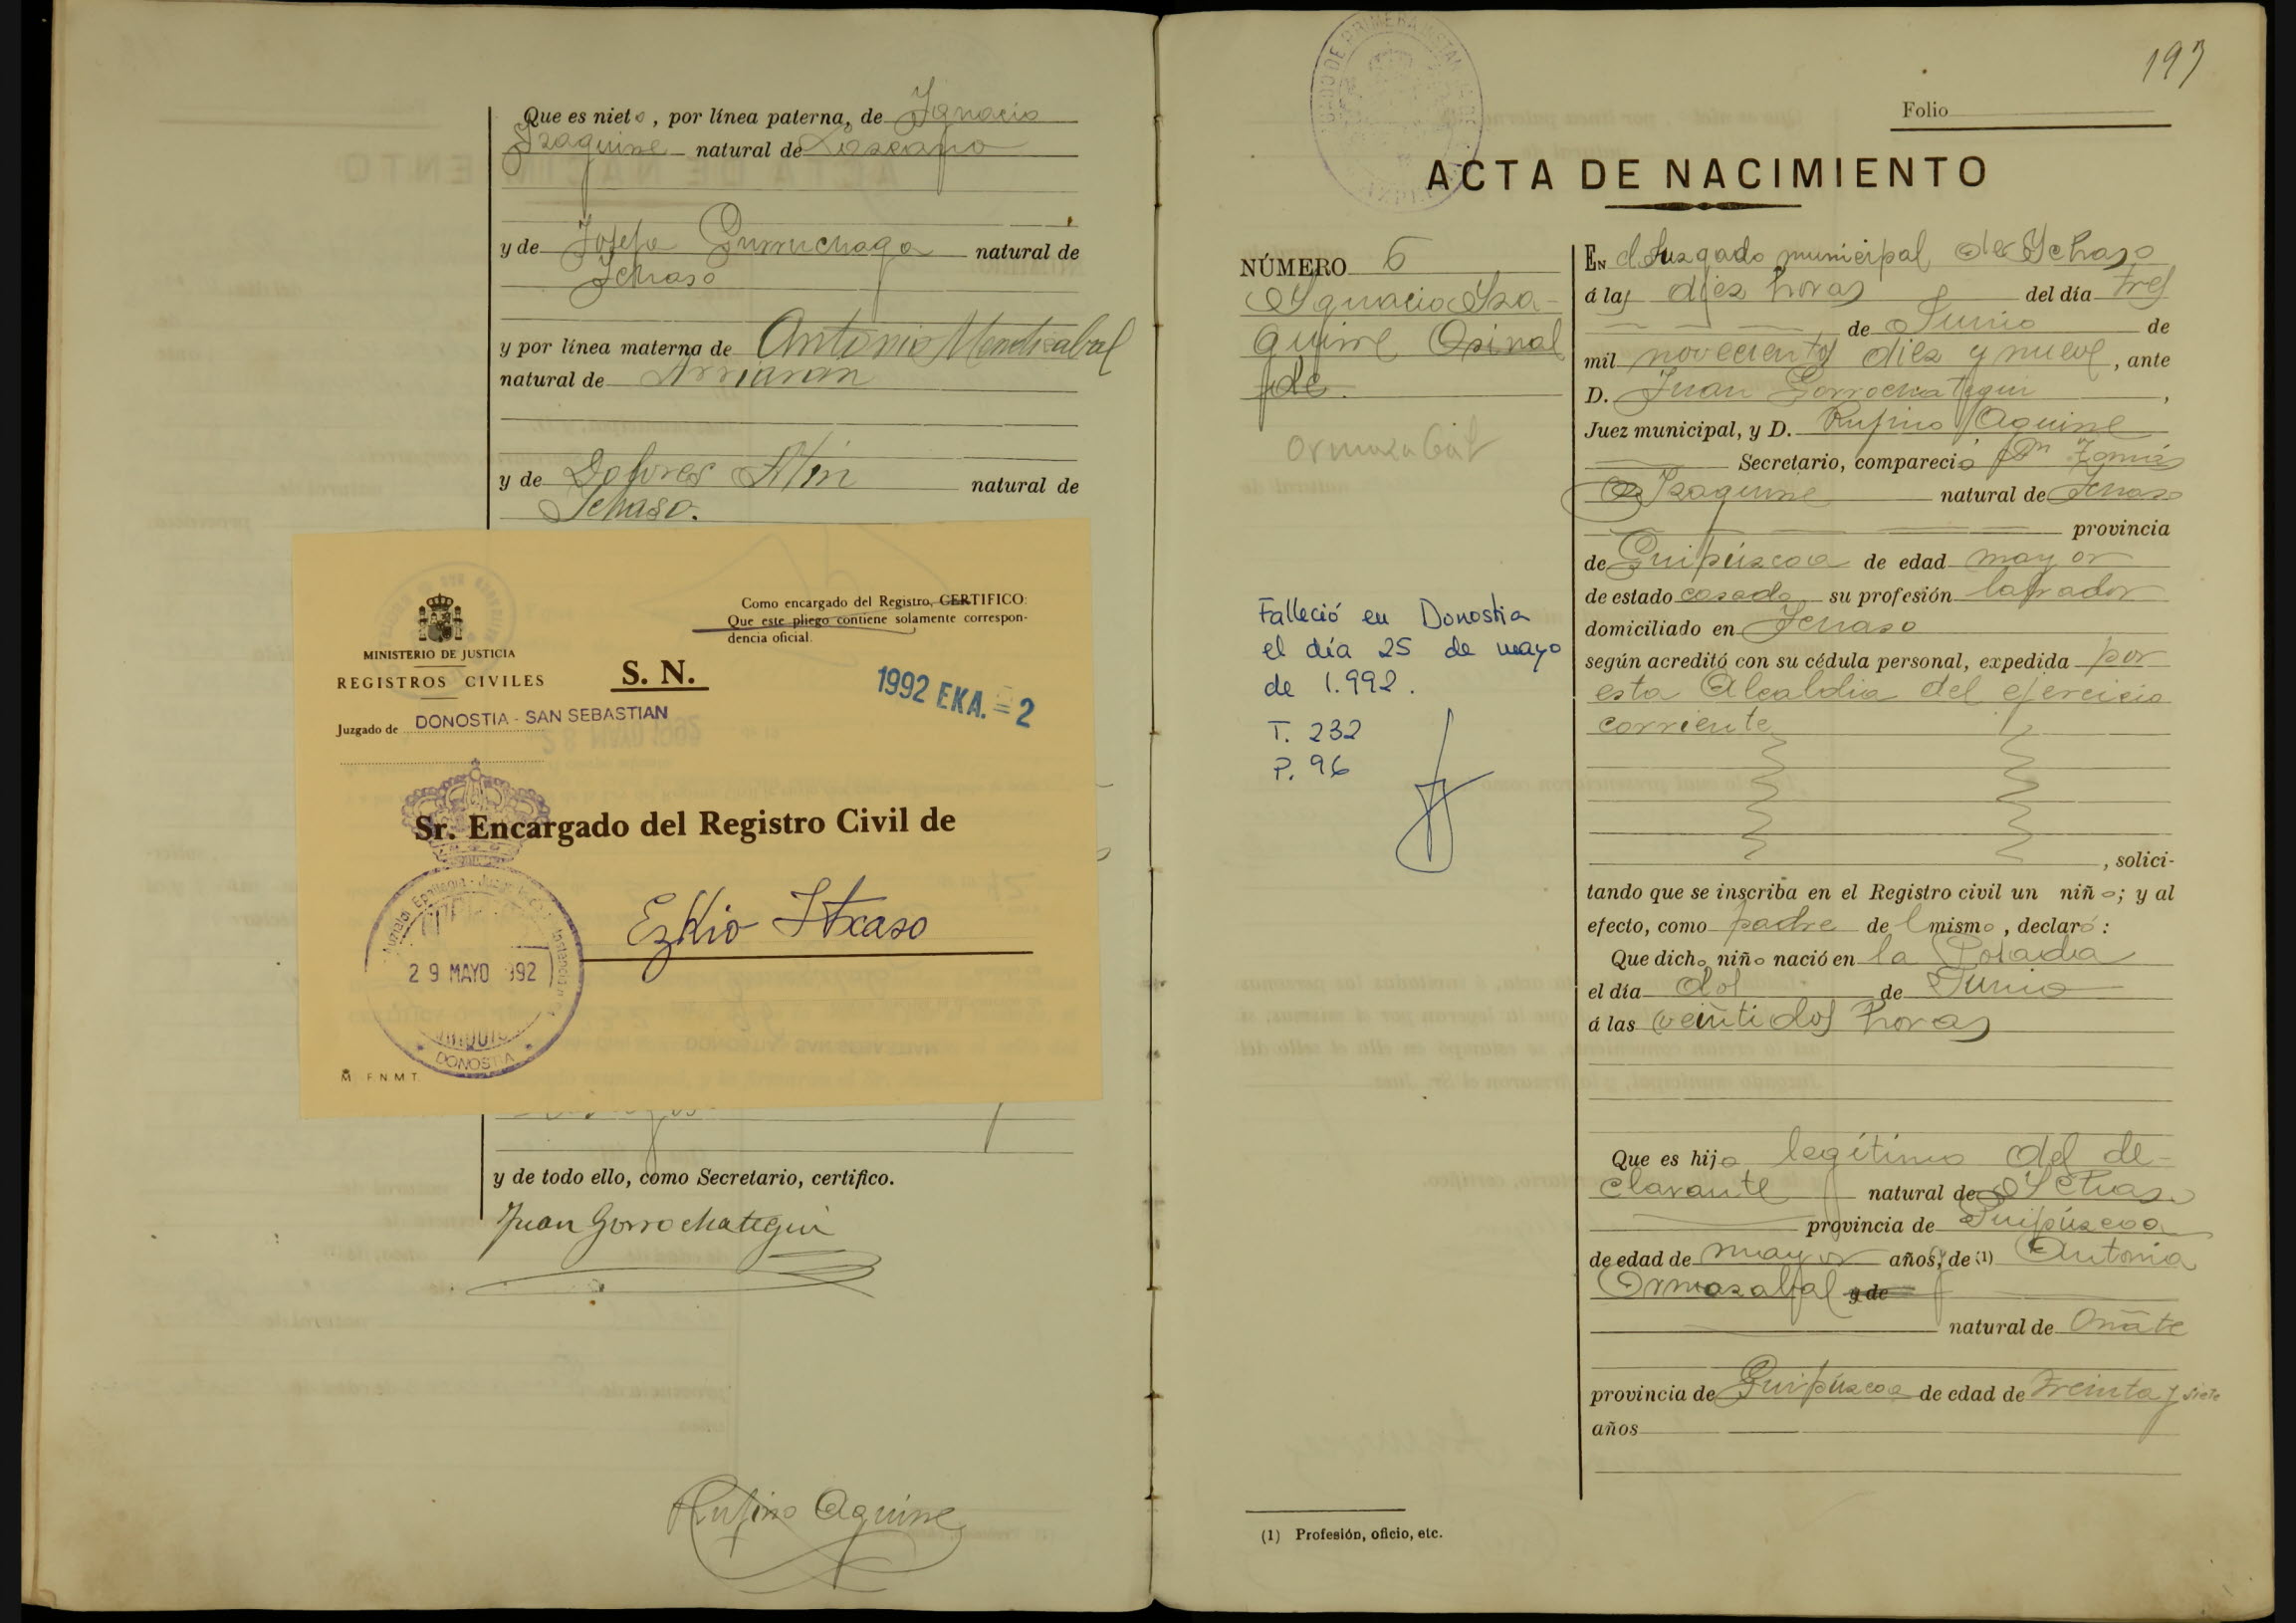 Que es nieto, por línea paterna, de Ignacio
Yzaguirre natural de Lazcano
y de Josefa Gurruchaga natural de
Ichaso
y por línea materna de Antonio Mendizabal
natural de Arriaran
y de Dolores Atin natural de
Ichaso.
MINISTERIO DE JUSTICIA
REGISTROS CIVILES
Juzgado de DONOSTIA - SAN SEBASTIAN
S. N.
Como encargado del Registro, CERTIFICO:
Que este pliego contiene solamente correspon-
dencia oficial.
1992 EKA. = 2
Sr. Encargado del Registro Civil de
Ezkio Itxaso
29 MAYO 992
DONOSTIA
F. N. M. T.
y de todo ello, como Secretario, certifico.
Juan Gorrochategui
Rufino Aguirre
197
Folio
ACTA DE NACIMIENTO
NÚMERO 6
Ygnacio Yza-
guirre
Ormazabal
Falleció en Donostia
el día 25 de mayo
de 1.992.
T. 232
P. 96
EN el Juzgado municipal de Ychaso
á las diez horas del día tres
de Junio de
mil novecientos diez y nueve, ante
D. Juan Gorrochategui,
Juez municipal, y D. Rufino Aguirre
Secretario, compareció Dn Tomás
Yzaguirre natural de Ichaso
provincia
de Guipúzcoa de edad mayor
de estado casado su profesión labrador
domiciliado en Ichaso
según acreditó con su cédula personal, expedida por
esta Alcaldia del ejercicio
corriente
, solici-
tando que se inscriba en el Registro civil un niño; y al
efecto, como padre del mismo, declaró:
Que dicho niño nació en la Posada
el día dos de Junio
á las veinti dos horas
Que es hijo legítimo del de-
clarante natural de Ychaso
provincia de Guipúzcoa
de edad de mayor años, y de (1) Antonia
Ormazabal y de
natural de Oñate
provincia de Guipúzcoa de edad de treinta y siete
años
(1) Profesión, oficio, etc.